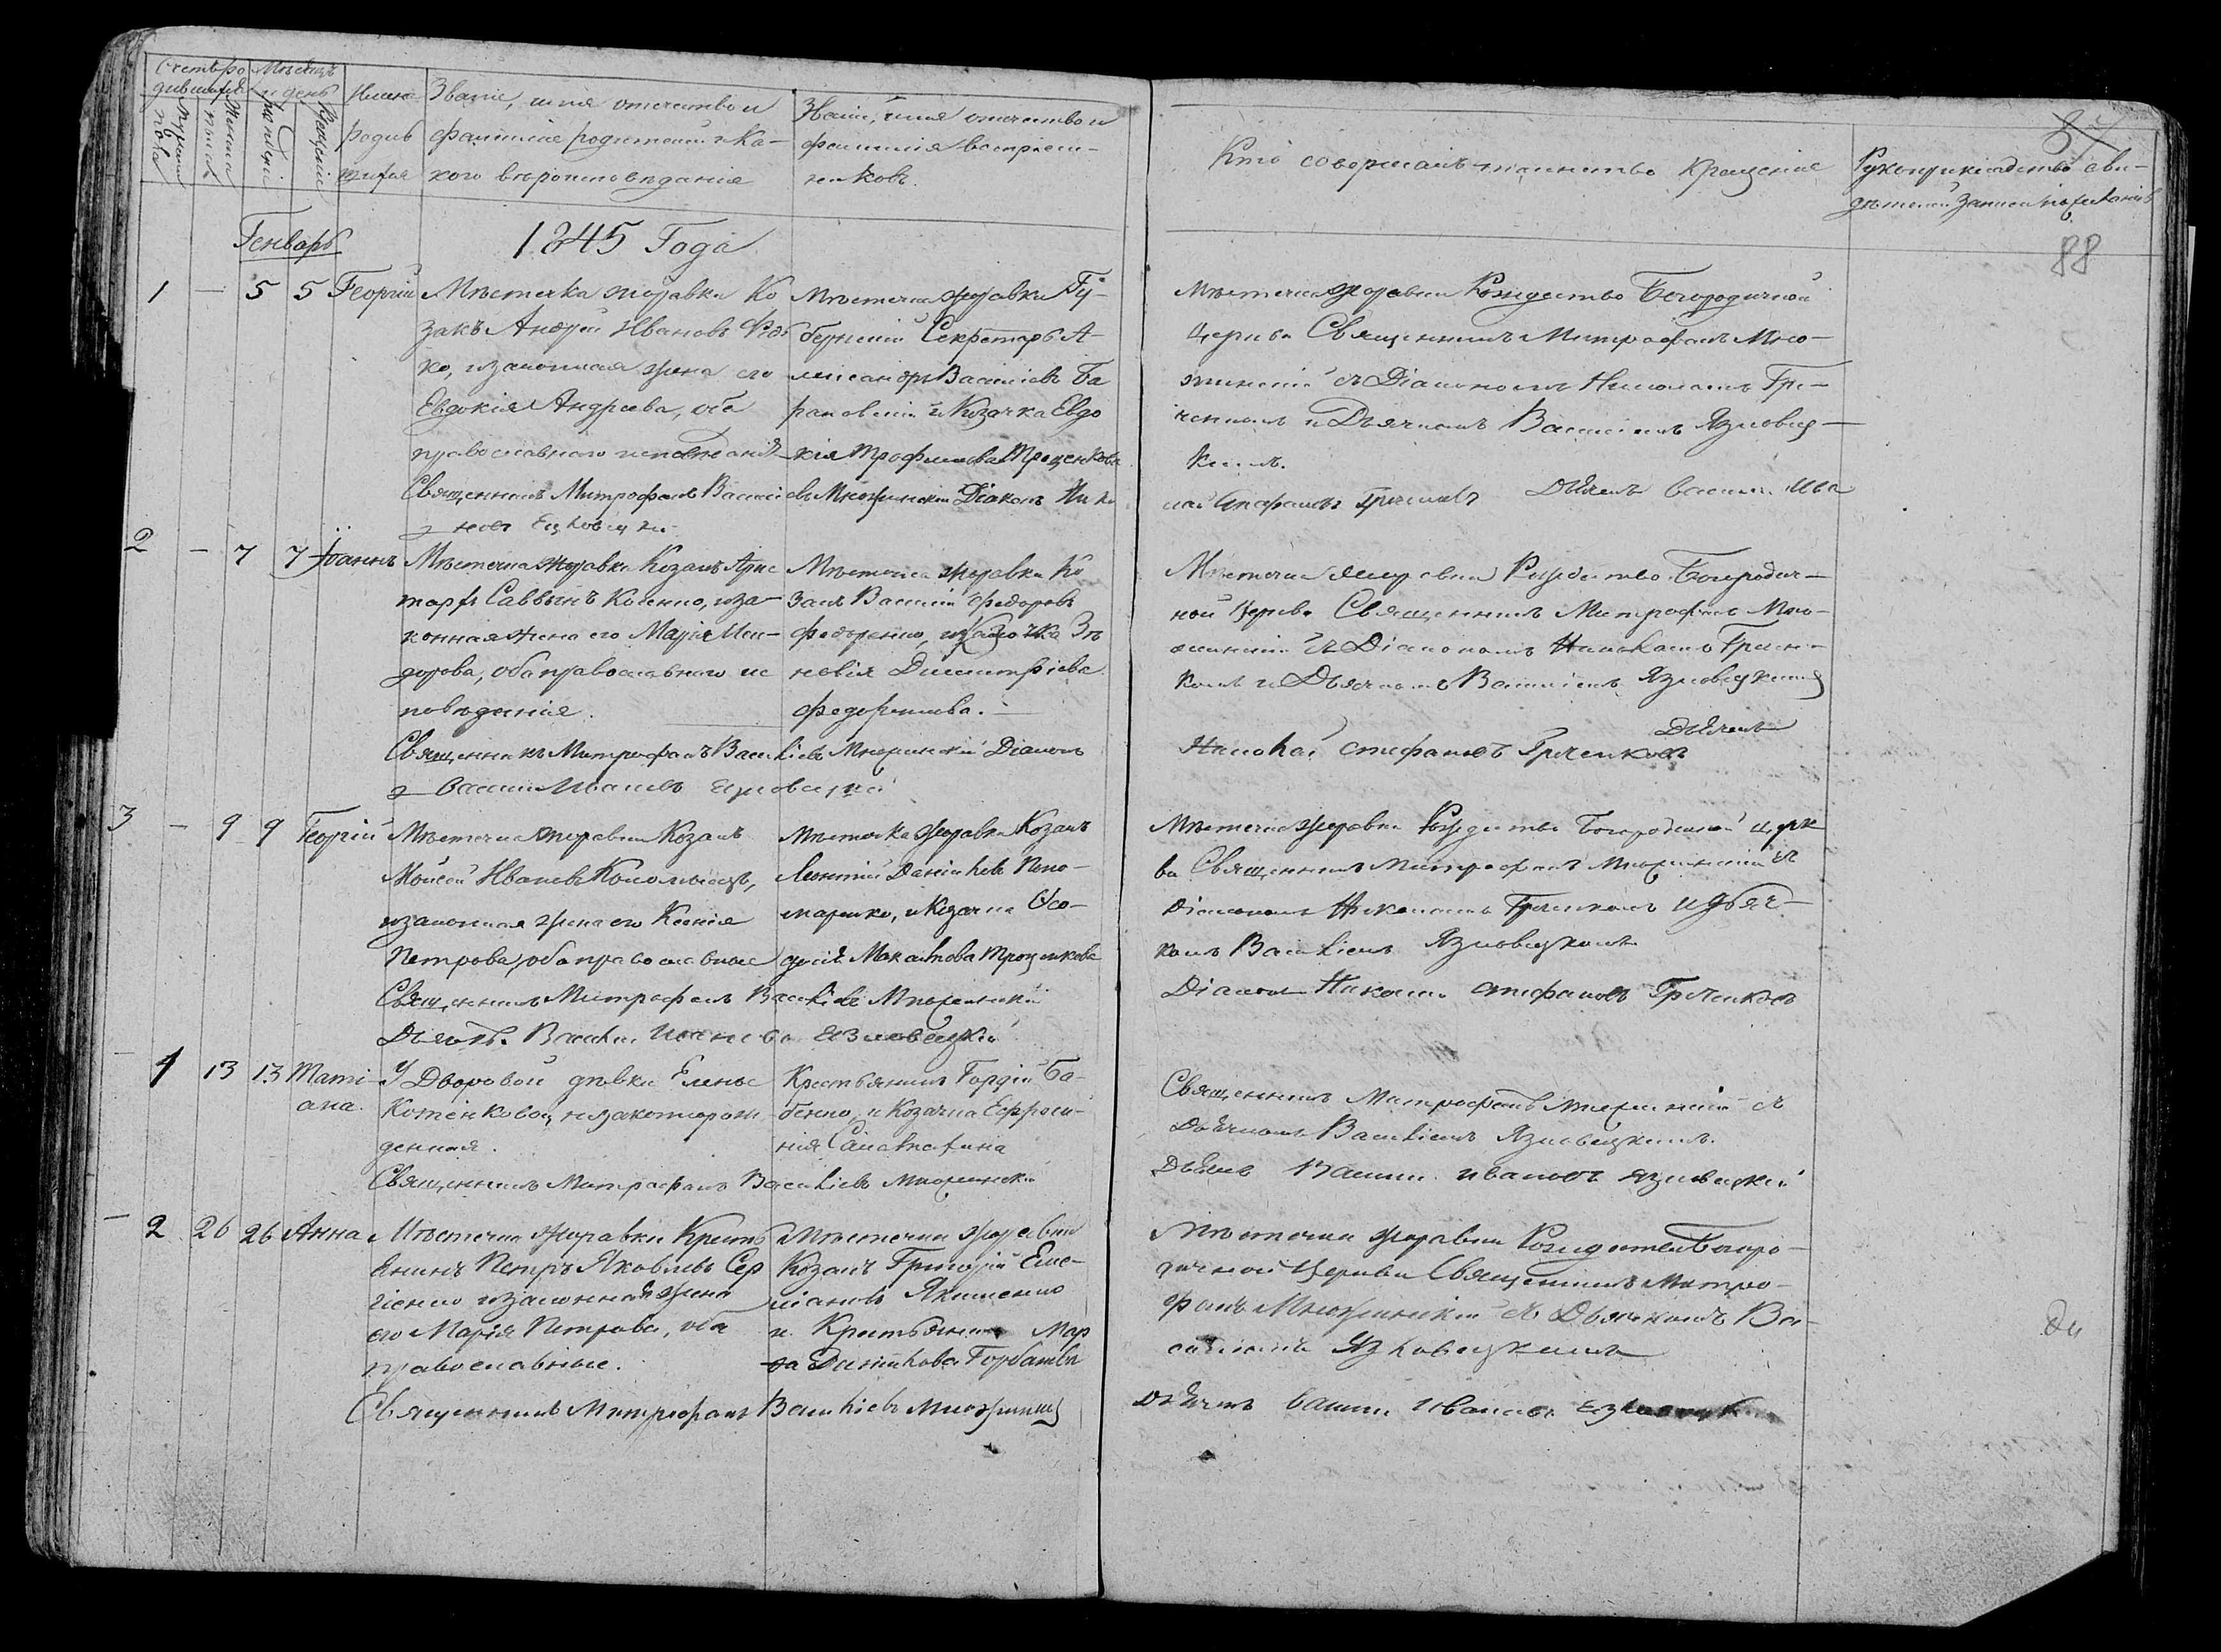 Счетъ ро
дившихся
Мѣсяцъ
и день
Имена
родив
шихся
Званіе, имя отечество и
фамиліе родителей и Ка-
кого вѣроисповѣданія
Званіе, имя отечество и
фамилія воспріем-
никовъ.
Кто совершалъ таинство Крещенія
Рукоприкладство сви-
дѣтелей записи по желанію
мужеска
пола
женска
пола
рожденія
Крещенія
87
88
Генварь
1845 Года
1 — 5 5 Георгій
Мѣстечка Журавки Ко
закъ Андрей Ивановъ
ко, и законная жена его
Евдокія Андреева, оба
православнаго исповѣданія
Мѣстечка Журавки Гу-
бернскій Секретарь А-
лександръ Василіевъ Ба
рановскій и Козачка Евдо
кія Трофимова Троценкова
Мѣстечка Журавки Рождество Богородичной
Церкви Священникъ Митрофанъ Мно-
жинскій съ Діакономъ Николаемъ Гре-
ченкомъ и Дьячкомъ Василіемъ Язловец-
кимъ.
Священникъ Митрофанъ Василіевъ Множинскій Діаконъ Нико
лай Стефановъ Греченковъ Дьячекъ Василій Ива
новъ Езловецкій
2 — 7 7 Іоаннъ
Мѣстечка Журавки Козакъ Арис
тархъ Саввинъ Косенко, и за-
конная жена его Марія Иси-
дорова, оба православнаго ис
повѣданія.
Мѣстечка Журавки Ко
закъ Василій Федоровъ
Федоренко, и Козачка Зѣ
новія Димитріева
Федоренкова.
Мѣстечка Журавки Рождество Богородич-
ной Церкви Священникъ Митрофанъ Мно-
жинскій съ Діакономъ Николаемъ Гречен-
комъ и Дьячкомъ Василіемъ Язловецкимъ
Священникъ Митрофанъ Василіевъ Множинскій Діаконъ
Николай Стефановъ Греченковъ Дьячекъ
Василій Ивановъ Езловецкій
3 — 9 9 Георгій
Мѣстечка Журавки Козакъ
Моисей Ивановъ Коломіецъ,
и законная жена его Ксенія
Петрова, оба православные
Мѣстечка Журавки Козакъ
Леонтій Даніиловъ Поно-
маренко, и Козачка Ѳео-
досія Троценкова
Мѣстечка Журавки Рождество Богородичной церк
ви Священникъ Митрофанъ Множинскій съ
Діакономъ Николаемъ Греченкомъ и Дьяч-
комъ Василіемъ Язловецкимъ
Священникъ Митрофанъ Василіевъ Множинскій
Діаконъ Николай Стефановъ Греченковъ
Дьячекъ Василій Ивановъ Езловецкій
— 1 13 13 Таті-
ана.
У Дворовой дѣвки Елены
Котенковой, незаконорож-
денная.
Крестьянинъ Гордій Ба-
бенко, и Козачка Евфроси-
нія
Священникъ Митрофанъ Множинскій съ
Дьячкомъ Василіемъ Язловецкимъ.
Священникъ Митрофанъ Василіевъ Множинскій
Дьячекъ Василій Ивановъ Язловецкій
— 2 26 26 Анна
Мѣстечка Журавки Кресть
янинъ Петръ Яковлевъ Сер
гіенко и законная жена
его Марія Петрова, оба
православные.
Мѣстечка Журавки
Козакъ Григорій Еме-
ліановъ Якименко
и Крестьянка Мар
ѳа Даніилова Горбатова
Мѣстечка Журавки Рождество Богоро-
дичной Церкви Священникъ Митро-
фанъ Множинскій съ Дьячкомъ Ва-
силіемъ Язловецкимъ
Священникъ Митрофанъ Василіевъ Множинскій
Дьячекъ Василій Ивановъ